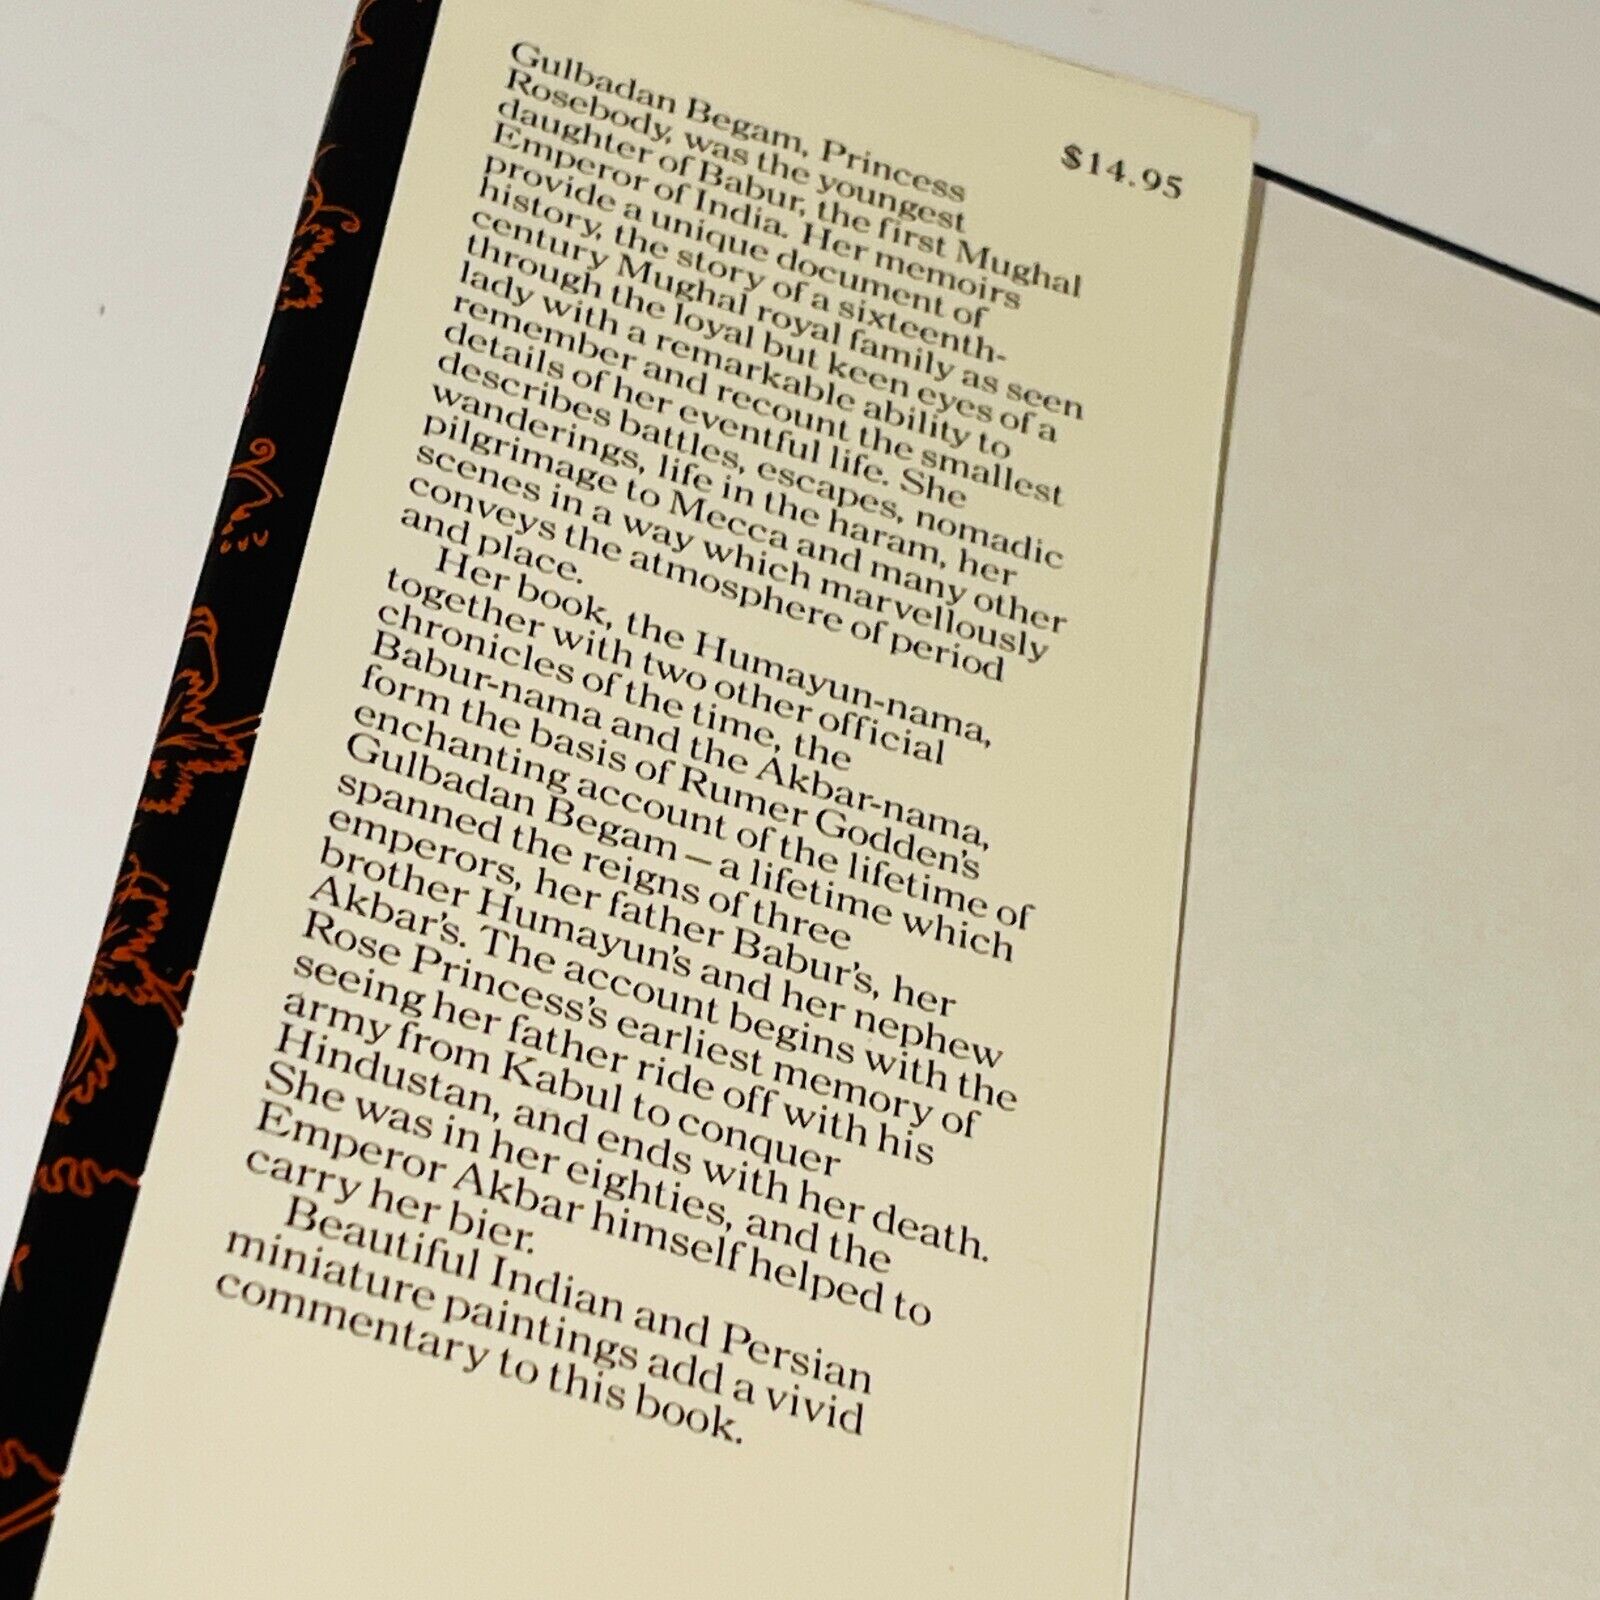 $14.95
Gulbadan Begam, Princess
Rosebody, was the youngest
daughter of Babur, the first Mughal
Emperor of India. Her memoirs
provide a unique document of
history, the story of a sixteenth-
century Mughal royal family as seen
through the loyal but keen eyes of a
lady with a remarkable ability to
remember and recount the smallest
details of her eventful life. She
describes battles, escapes, nomadic
wanderings, life in the haram, her
pilgrimage to Mecca and many other
scenes in a way which marvellously
conveys the atmosphere of period
and place.
Her book, the Humayun-nama,
together with two other official
chronicles of the time, the
Babur-nama and the Akbar-nama,
form the basis of Rumer Godden's
enchanting account of the lifetime of
Gulbadan Begam – a lifetime which
spanned the reigns of three
emperors, her father Babur's, her
brother Humayun's and her nephew
Akbar's. The account begins with the
Rose Princess's earliest memory of
seeing her father ride off with his
army from Kabul to conquer
Hindustan, and ends with her death.
She was in her eighties, and the
Emperor Akbar himself helped to
carry her bier.
Beautiful Indian and Persian
miniature paintings add a vivid
commentary to this book.